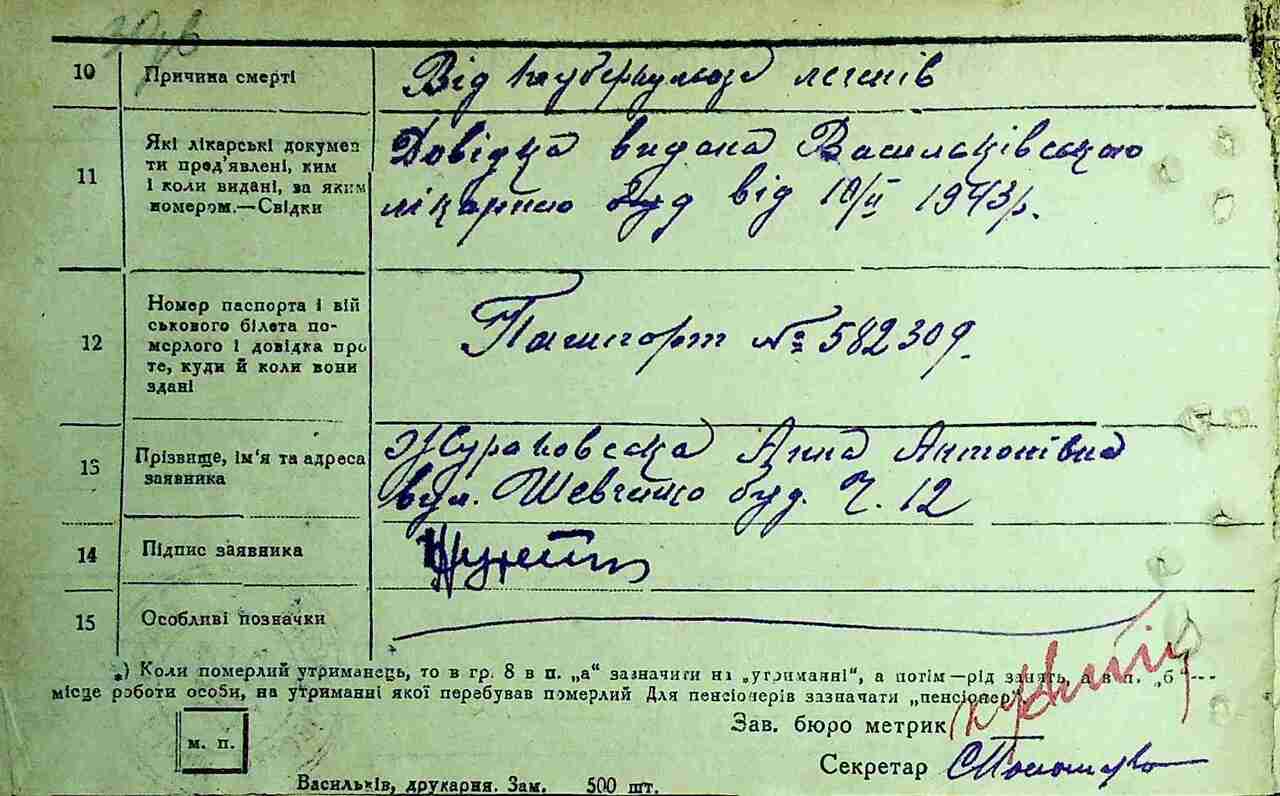 10 Причина смерті Від туберкульоза легенів
11 Які лікарські докумен
ти пред'явлені, ким
і коли видані, за яким
номером.—Свідки
Довідка видана Васильківською
лікарнею від 10/II 1943р.
12 Номер паспорта і вій
ськового білета по-
мерлого і довідка про
те, куди й коли вони
здані
Пашпорт № 582309.
13 Прізвище, ім'я та адреса
заявника
Жураковська Анна Антонівна
вул. Шевченко буд. Ч. 12
14 Підпис заявника
15 Особливі позначки
*) Коли померлий утриманець, то в гр. 8 в п. „а“ зазначити на „утриманні“, а потім—рід занять, а в п. „б“---
місце роботи особи, на утриманні якої перебував померлий Для пенсіонерів зазначати „пенсіонер“
Зав. бюро метрик
м. п.
Секретар
Васильків, друкарня. Зам. 500 шт.